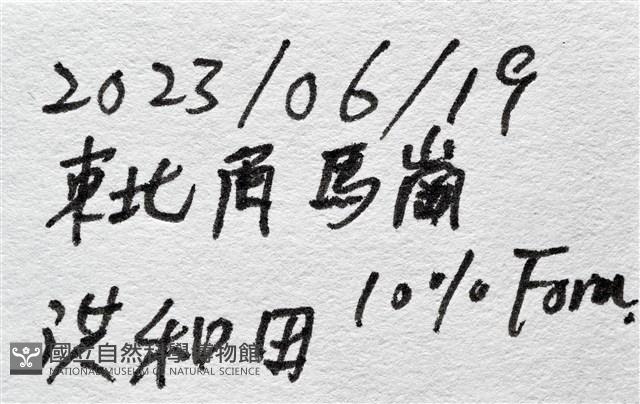 2023/06/19
東北角馬崗
洪和田 10% Form.
國立自然科學博物館
NATIONAL MUSEUM OF NATURAL SCIENCE